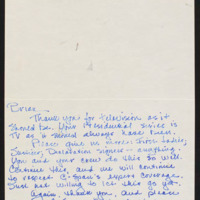 Brian —
Thank you for television as it
should be. Your Presidential series is
TV as it should always have been.
Please give us more: First Ladies,
Senior, Declaration signers — anything.
You and your crew do this so well.
Continue this, and we will continue
to respect C-Span's expert coverage.
Just not willing to let this go yet.
Again, thank you, and please